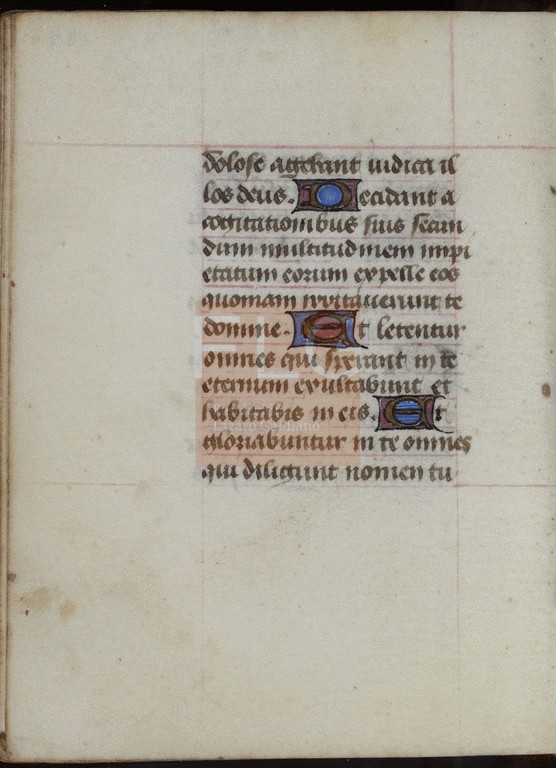 dolose agebant iudica il
los deus. Decidant a
cogitationibus suis secun
dum multitudinem impi
etatum eorum expelle eos
quoniam irritauerunt te
domine. Et letentur
omnes qui sperant in te
eternum exultabunt et
habitabis in eis. Et
gloriabuntur in te omnes
qui diligunt nomen tu
FLG
Lázaro Galdiano